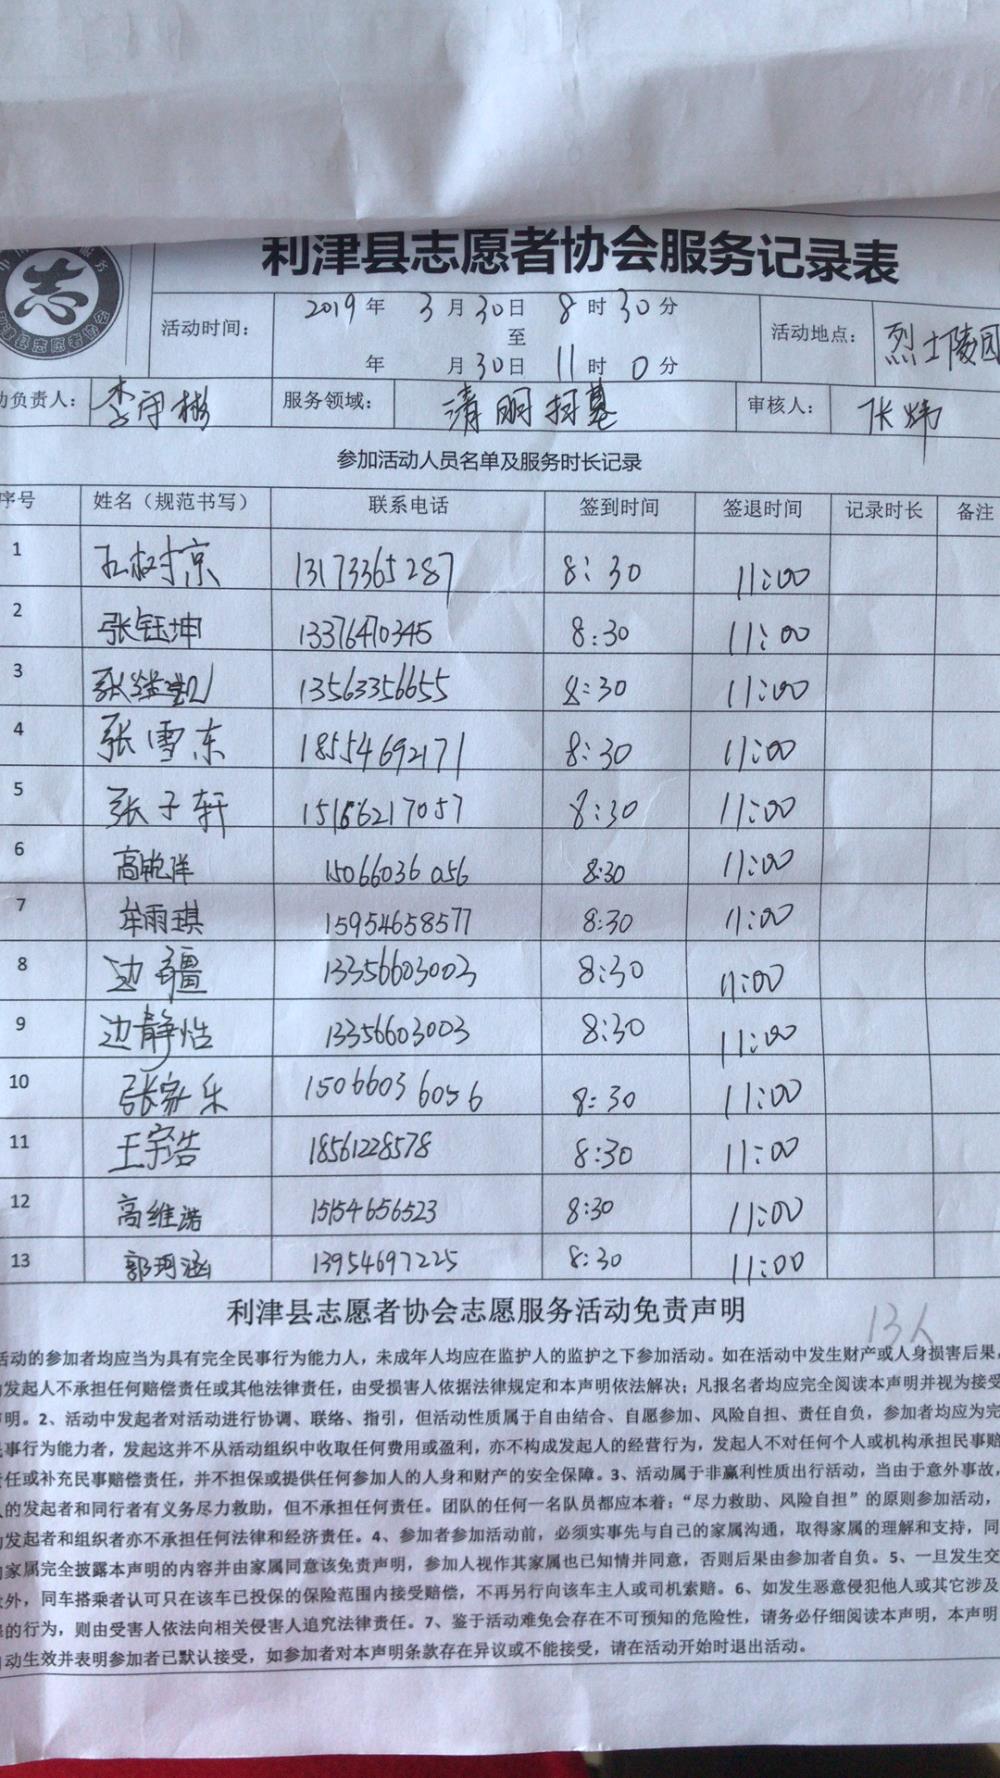 利津县志愿者协会服务记录表
志
利津县志愿者协会
活动时间： 2019年 3月30日 8时30分
至
年 月30日 11时 0分
活动地点： 烈士陵园
动负责人： 李守彬 服务领域： 清明扫墓 审核人： 张炜
参加活动人员名单及服务时长记录
序号 姓名（规范书写） 联系电话 签到时间 签退时间 记录时长 备注
1 树京 13173365287 8:30 11:00
2 张钰坤 13376470345 8:30 11:00
3 张 13563356655 8:30 11:00
4 张雪东 18554692171 8:30 11:00
5 张子轩 15166217057 8:30 11:00
6 高艳洋 15066036056 8:30 11:00
7 牟雨琪 15954658577 8:30 11:00
8 边疆 13356603003 8:30 11:00
9 边静怡 13356603003 8:30 11:00
10 张家乐 15066036056 8:30 11:00
11 王宇浩 18561228578 8:30 11:00
12 高维浩 15154656523 8:30 11:00
13 郭珂涵 13954697225 8:30 11:00
利津县志愿者协会志愿服务活动免责声明
13人
活动的参加者均应当为具有完全民事行为能力人，未成年人均应在监护人的监护之下参加活动。如在活动中发生财产或人身损害后果，
发起人不承担任何赔偿责任或其他法律责任，由受损害人依据法律规定和本声明依法解决；凡报名者均应完全阅读本声明并视为接受
明。2、活动中发起者对活动进行协调、联络、指引，但活动性质属于自由结合、自愿参加、风险自担、责任自负，参加者均应为完
事行为能力者，发起这并不从活动组织中收取任何费用或盈利，亦不构成发起人的经营行为，发起人不对任何个人或机构承担民事赔
任或补充民事赔偿责任，并不担保或提供任何参加人的人身和财产的安全保障。3、活动属于非赢利性质出行活动，当由于意外事故，
的发起者和同行者有义务尽力救助，但不承担任何责任。团队的任何一名队员都应本着：“尽力救助、风险自担”的原则参加活动，
发起者和组织者亦不承担任何法律和经济责任。4、参加者参加活动前，必须实事先与自己的家属沟通，取得家属的理解和支持，同
家属完全披露本声明的内容并由家属同意该免责声明，参加人视作其家属也已知情并同意，否则后果由参加者自负。5、一旦发生交
外，同车搭乘者认可只在该车已投保的保险范围内接受赔偿，不再另行向该车主人或司机索赔。6、如发生恶意侵犯他人或其它涉及
的行为，则由受害人依法向相关侵害人追究法律责任。7、鉴于活动难免会存在不可预知的危险性，请务必仔细阅读本声明，本声明
动生效并表明参加者已默认接受，如参加者对本声明条款存在异议或不能接受，请在活动开始时退出活动。